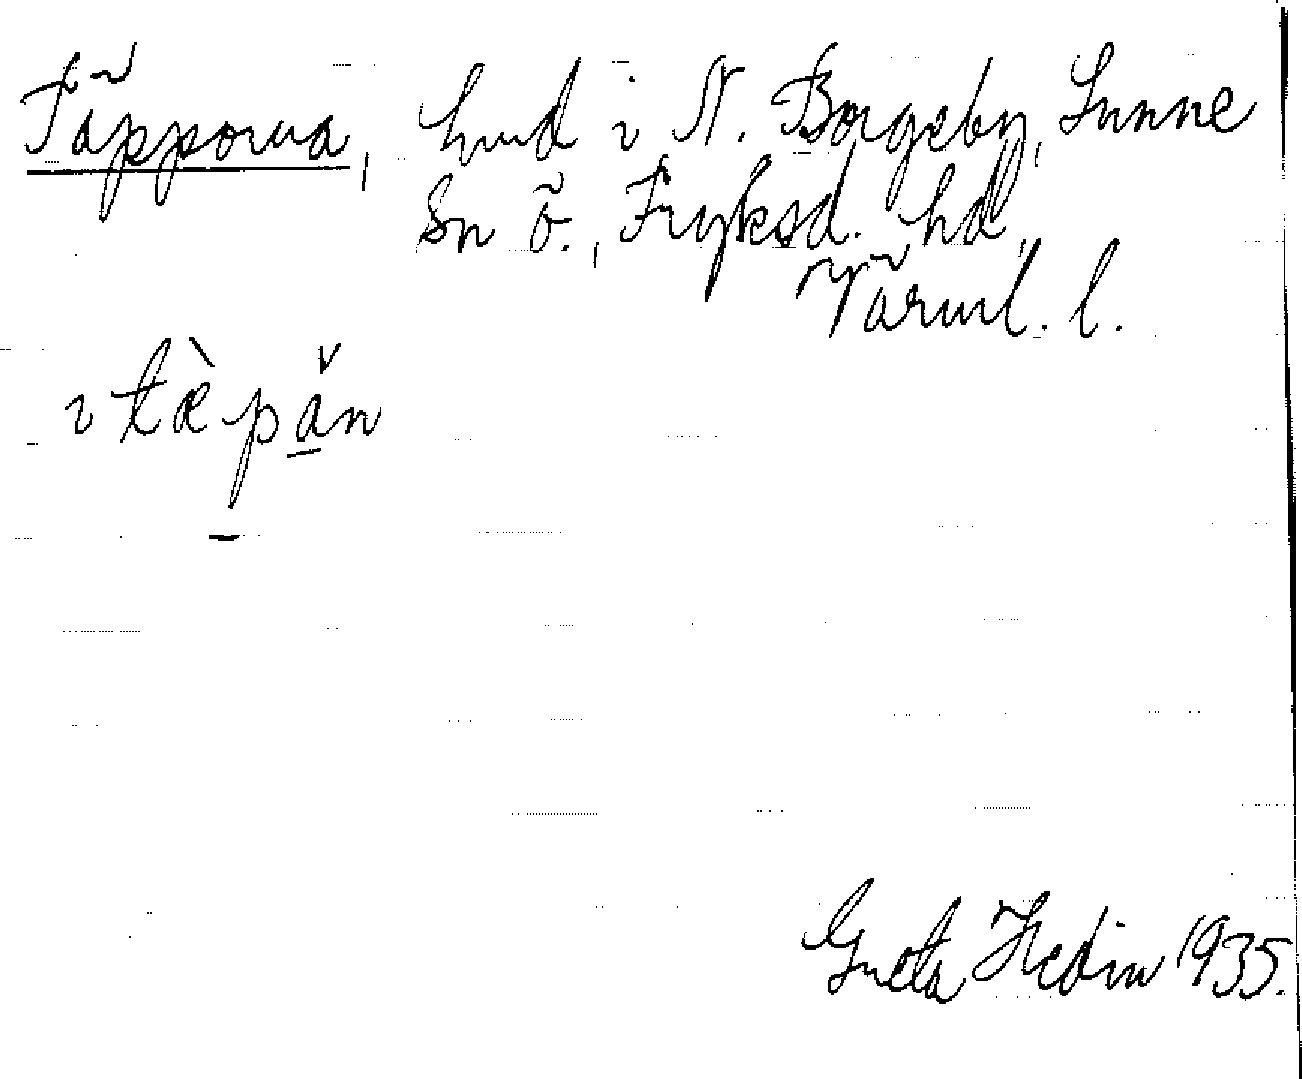 Täpporna, hmd i N. Borgeby, Sunne
Sn ö., Fryksd. hd,
Värml. l.
i tæ̀păn
Greta Hedin 1935.